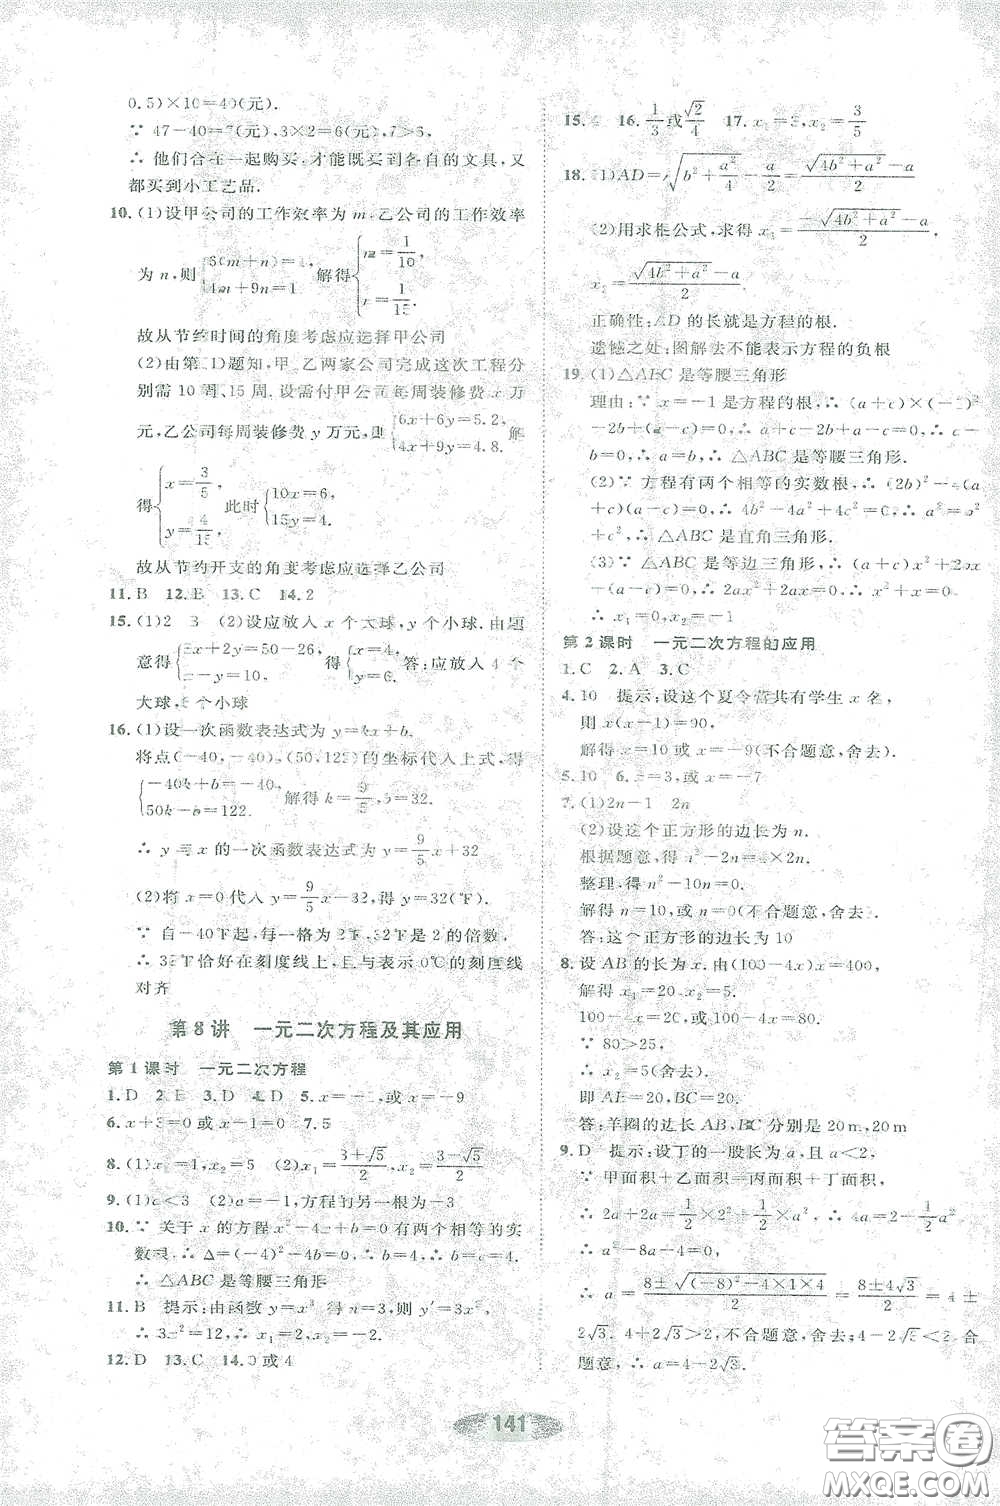 0.5)×10=40(元).
∵ 47-40=7(元),3×2=6(元),7>6,
∴ 他们合在一起购买,才能既买到各自的文具,又
都买到小工艺品.
10.(1)设甲公司的工作效率为 m,乙公司的工作效率
为 n,则 {6(m+n)=1, 4m+9n=1, 解得 {m=1/10, n=1/15.
故从节约时间的角度考虑应选择甲公司
(2)由第(1)题知,甲、乙两家公司完成这次工程分
别需 10 周、15 周.设需付甲公司每周装修费 x 万
元,乙公司每周装修费 y 万元,则 {6x+6y=5.2, 4x+9y=4.8. 解
得 {x=3/5, y=4/15, 此时 {10x=6, 15y=4.
故从节约开支的角度考虑应选择乙公司
11.B 12. 13.C 14.2
15.(1)2 3 (2)设应放入 x 个大球,y 个小球.由题
意得 {3x+2y=50-26, x-y= 得 {x=4, y=6. 答:应放入 4 个
大球,6 个小球
16.(1)设一次函数表达式为 y=kx+b.
将点(-40,-40),(50,122)的坐标代入上式,得
{-40k+b=-40, 50k+b=122. 解得 k=9/5,b=32.
∴ y 与 x 的一次函数表达式为 y=9/5x+32
(2)将 x=0代入 y=9/5x+32,得 y=32(℉).
∵ 自-40℉起,每一格为 2℉,32℉是 2 的倍数,
∴ 32℉恰好在刻度线上,且与表示 0℃的刻度线
对齐
第 8 讲 一元二次方程及其应用
第 1 课时 一元二次方程
1.D 2. 3.D 4.D 5.x= 或 x=-9
6.x+3=0或 x-1=0 7.5
8.(1)x₁=1,x₂=5 (2)x₁=(3+√5)/2,x₂=(3-√5)/2
9.(1)a<3 (2)a=-1,方程的另一根为-3
10.∵ 关于 x 的方程 x²-4x+b=0有两个相等的实
数根,∴ Δ=(-4)²-4b=0.∴ b=4.
∴ △ABC 是等腰三角形
11.B 提示:由函数 y=x³ 得 n=3,则 y′=3x²,
∴ 3x²=12,∴ x₁=2,x₂=-2.
12.D 13.C 14.0或 4
15.4 16.1/3或√2/4 17.x₁=3,x₂=3/5
18.(1)AD=√(b²+a²/4)-a/2=(√(4b²+a²)-a)/2
(2)用求根公式,求得 x₁=(-√(4b²+a²)-a)/2,
x₂=(√(4b²+a²)-a)/2.
正确性:AD 的长就是方程的根.
遗憾之处:图解法不能表示方程的负根
19.(1)△ABC 是等腰三角形
理由:∵ x=-1是方程的根,∴ (a+c)×(-1)²
-2b+(a-c)=0.∴ a+c-2b+a-c=0.∴ a-
b=0.∴ a=b.∴ △ABC 是等腰三角形.
(2)∵ 方程有两个相等的实数根,∴ (2b)²-4(a+
c)(a-c)=0.∴ 4b²-4a²+4c²=0.∴ a²=b²
+c².∴ △ABC 是直角三角形.
(3)∵ △ABC 是等边三角形,∴ (a+c)x²+2bx
+(a-c)=0可整理为 2ax²+2ax=0.∴ x²+x=0.
∴ x₁=0,x₂=-1
第 2 课时 一元二次方程的应用
1.C 2.A 3.C
4.10 提示:设这个夏令营共有学生 x 名,
则 x(x-1)=90,
解得 x=10或 x=-9(不合题意,舍去).
5.10 6.x=3,或 x=-7
7.(1)2n-1 2n
(2)设这个正方形的边长为 n.
根据题意,得 n²-2n=4×2n.
整理,得 n²-10n=0.
解得 n=10,或 n=0(不合题意,舍去).
答:这个正方形的边长为 10
8.设 AB 的长为 x.由(100-4x)x=400,
解得 x₁=20,x₂=5.
100-4x=20或 100-4x=80.
∵ 80>25,
∴ x₂=5(舍去).
即 AB=20,BC=20.
答:羊圈的边长 AB,BC分别是 20 m,20 m
9.D 提示:设丁的一股长为 a,且 a<2,
∵ 甲面积+乙面积=丙面积+丁面积,
∴ 2a+2a=1/2×2²+1/2×a².∴ 4a=2+1/2a².
∴ a²-8a+4=0.
∴ a=(8±√((-8)²-4×1×4))/2=(8±4√3)/2=4±
2√3.4+2√3>2,不合题意,舍去;4-2√3<2,合
题意,∴ a=4-2√3.
141
答案圈
MXQE.COM